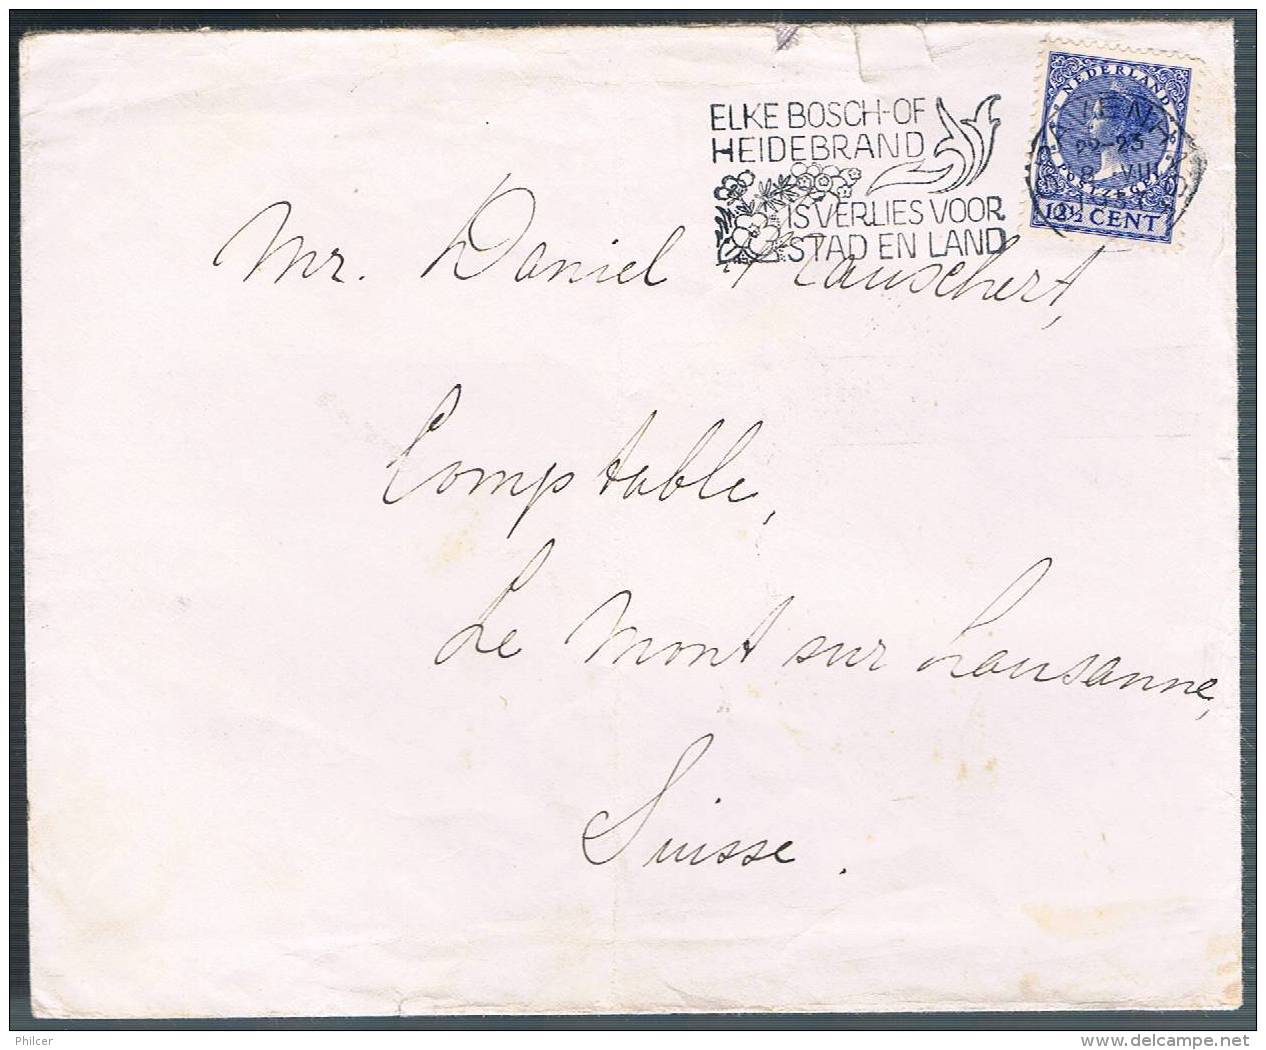 ELKE BOSCH-OF
HEIDEBRAND
IS VERLIES VOOR
STAD EN LAND
NEDERLAND
POSTZEGEL
12½ CENT
22-23
8 VIII
Mr. Daniel
Comptable,
Le Mont sur Lausanne,
Suisse.
Philcer
www.delcampe.net